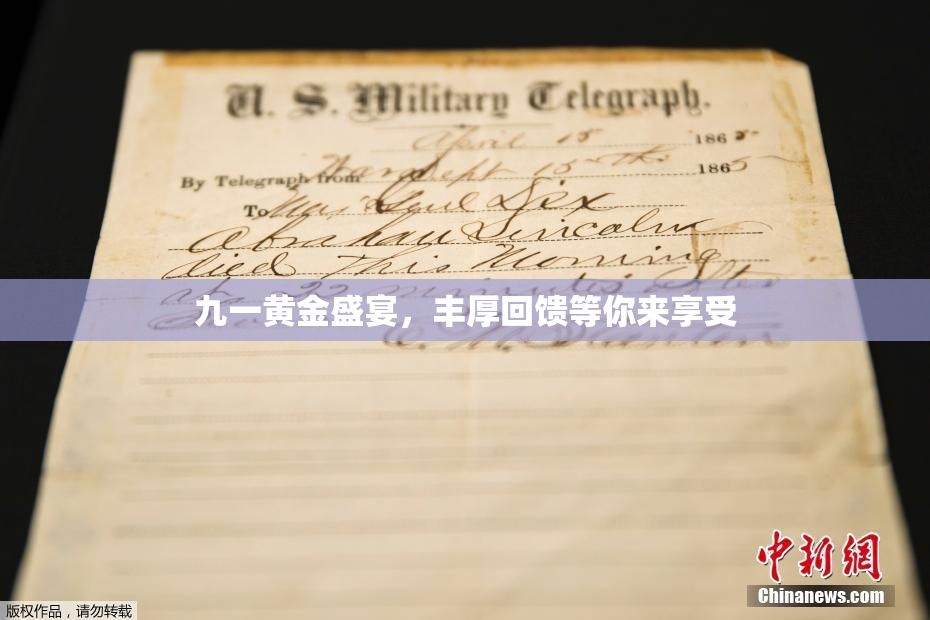 U. S. Military Telegraph.
April 15 1865
By Telegraph from War Dept 15th 1865
To Maj Genl Dix
Abraham Lincoln
died this Morning
at 22 minutes after
九一黄金盛宴，丰厚回馈等你来享受
E. M. Stanton
中新网
Chinanews.com
版权作品，请勿转载